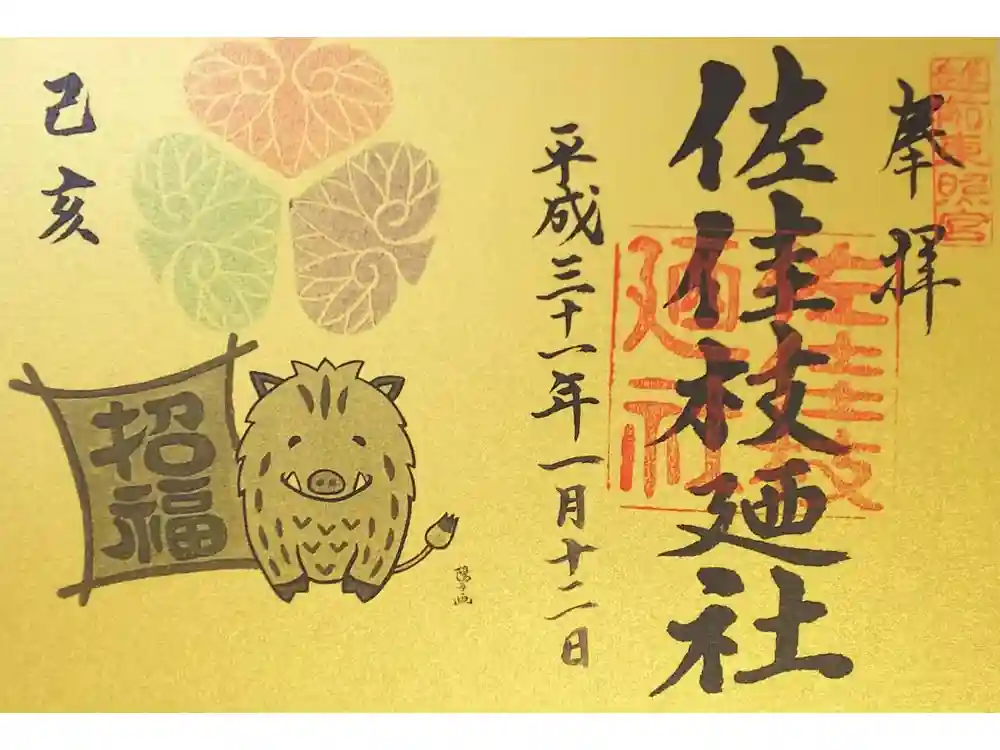 奉拝
越前東照宮
佐佳枝廼社
佐佳枝
廼社
平成三十一年一月十二日
己亥
招福